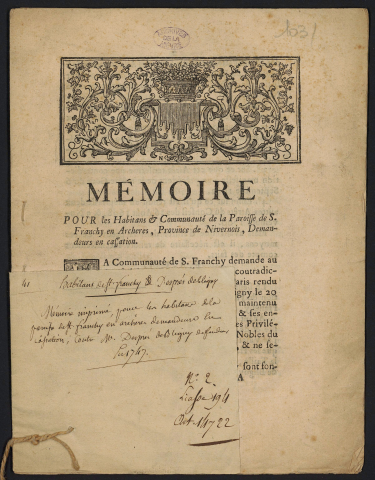 MÉMOIRE
POUR les Habitans & Communauté de la Paroisse de S.
Franchy en Archeres, Province de Nivernois, Deman-
deurs en cassation.
LA Communauté de S. Franchy demande au
contradic-
aris rendu
igny le 20
maintenu
& ses en-
es Privilé-
Nobles du
, & ne se-
y sont fon-
A
41
habitans de St franchy Desprez de Bligny
Memoire imprimé pour les habitans de la
paroisse de St franchy en archere demandeurs en
cassation, contre Mr. Desprez de Bligny deffendeur
1747.
No. 2.
Liasse 194
Art. 14722